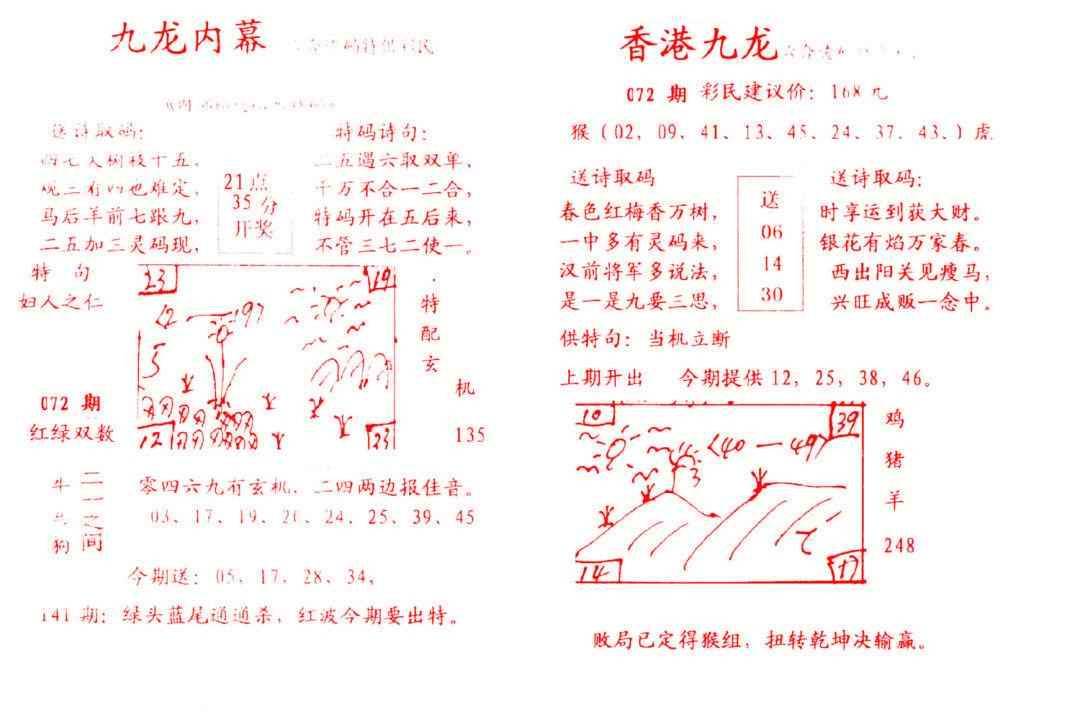 九龙内幕
送诗取码：
现三有四也难定，
马后羊前七跟九，
二五加三灵码现，
21点
35分
开奖
特码诗句：
二五遇六取双单，
千万不合一二合，
特码开在五后来，
不管三七二使一。
特 句
妇人之仁
23
19
12
23
特
配
玄
机
135
072 期
红绿双数
牛
狗
二
一
之
间
零四六九有玄机，二四两边报佳音。
03、17、19、20、24、25、39、45
今期送：05，17，28，34，
141 期：绿头蓝尾通通杀，红波今期要出特。
香港九龙
072 期 彩民建议价：168 元
猴（02，09、41、13、45、24、37、43、）虎
送诗取码
春色红梅香万树，
一中多有灵码来，
汉前将军多说法，
是一是九要三思，
送
06
14
30
送诗取码；
时享运到获大财。
银花有焰万家春。
西出阳关见瘦马，
兴旺成贩一念中。
供特句：当机立断
上期开出 今期提供 12，25，38，46。
10
39
〈40—49〉
3
14
17
鸡
猪
羊
248
败局已定得猴组，扭转乾坤决输赢。